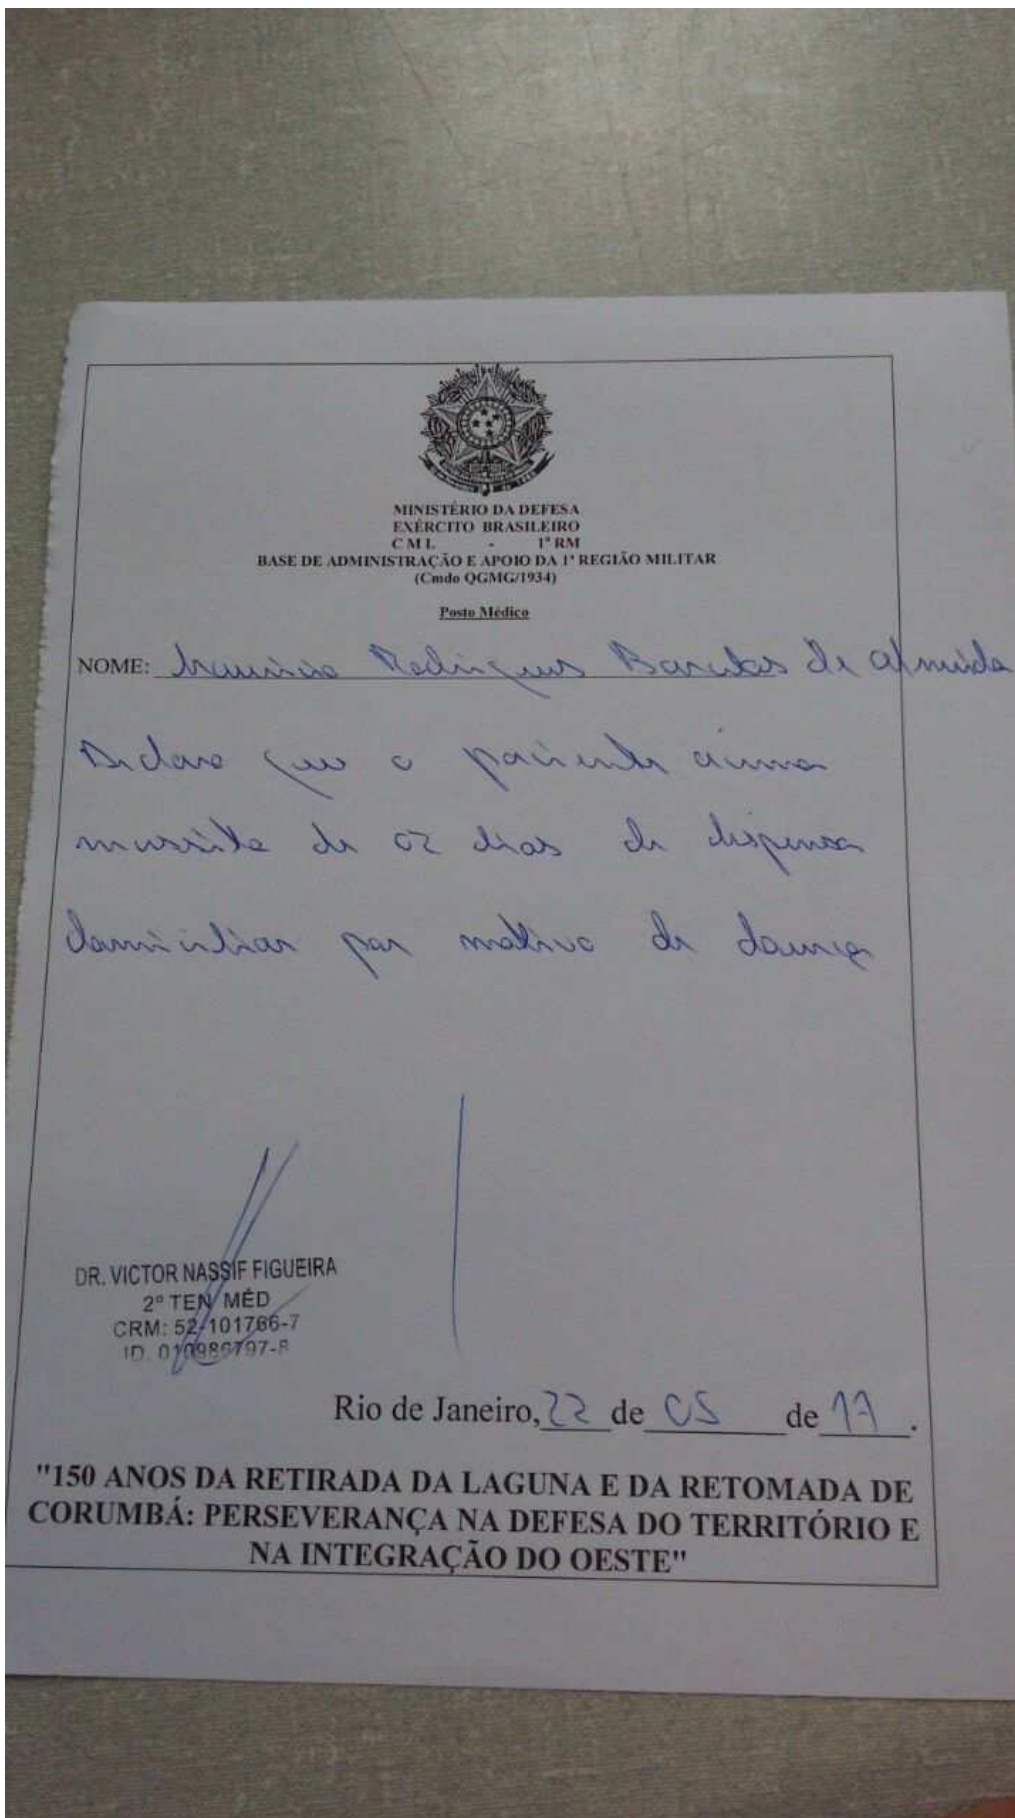 MINISTÉRIO DA DEFESA
EXÉRCITO BRASILEIRO
C M L - 1ª RM
BASE DE ADMINISTRAÇÃO E APOIO DA 1ª REGIÃO MILITAR
(Cmdo QGMG/1934)
Posto Médico
NOME: Rodrigues de Almeida
Declaro que o paciente acima
necessita de 02 dias de dispensa
domiciliar por motivo de doença
DR. VICTOR NASSIF FIGUEIRA
2º TEN MÉD
CRM: 52-101766-7
ID.
Rio de Janeiro, 22 de 05 de 17.
"150 ANOS DA RETIRADA DA LAGUNA E DA RETOMADA DE
CORUMBÁ: PERSEVERANÇA NA DEFESA DO TERRITÓRIO E
NA INTEGRAÇÃO DO OESTE"